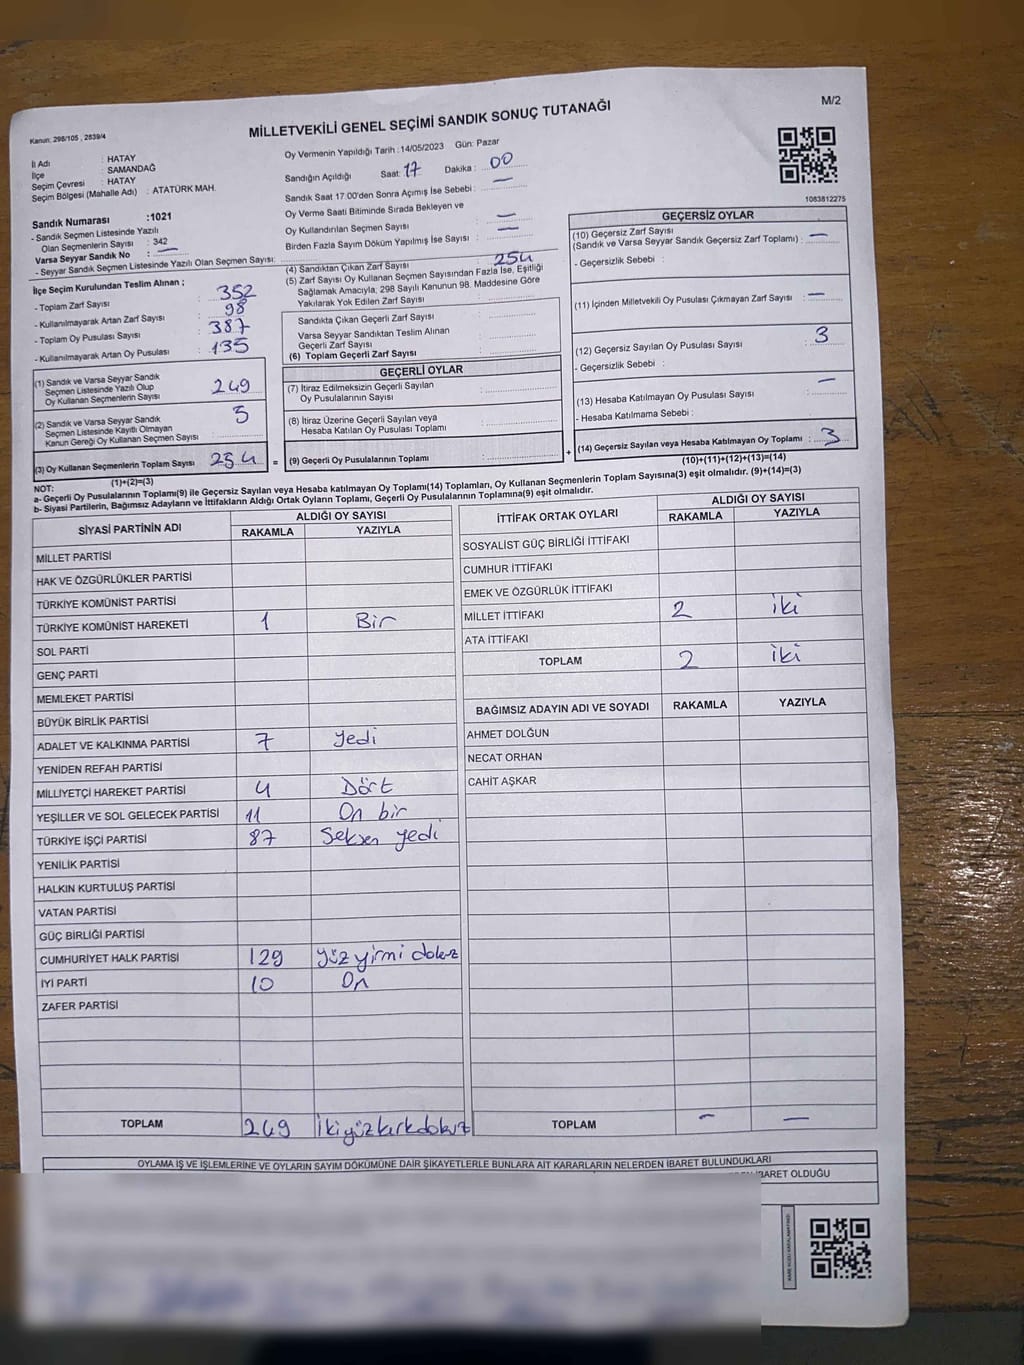 Kanun: 298/105 , 2839/4
MİLLETVEKİLİ GENEL SEÇİMİ SANDIK SONUÇ TUTANAĞI
M/2
İl Adı : HATAY
İlçe : SAMANDAĞ
Seçim Çevresi : HATAY
Seçim Bölgesi (Mahalle Adı) : ATATÜRK MAH.
Sandık Numarası :1021
- Sandık Seçmen Listesinde Yazılı
Olan Seçmenlerin Sayısı : 342
Varsa Seyyar Sandık No : —
- Seyyar Sandık Seçmen Listesinde Yazılı Olan Seçmen Sayısı:
İlçe Seçim Kurulundan Teslim Alınan ;
- Toplam Zarf Sayısı : 352
- Kullanılmayarak Artan Zarf Sayısı : 98
- Toplam Oy Pusulası Sayısı : 387
- Kullanılmayarak Artan Oy Pusulası : 135
(1) Sandık ve Varsa Seyyar Sandık
Seçmen Listesinde Yazılı Olup
Oy Kullanan Seçmenlerin Sayısı : 249
(2) Sandık ve Varsa Seyyar Sandık
Seçmen Listesinde Kayıtlı Olmayan
Kanun Gereği Oy Kullanan Seçmen Sayısı : 5
(3) Oy Kullanan Seçmenlerin Toplam Sayısı : 254
(1)+(2)=(3)
Oy Vermenin Yapıldığı Tarih :14/05/2023 Gün: Pazar
Sandığın Açıldığı Saat: 17 Dakika : 00
Sandık Saat 17:00'den Sonra Açımış İse Sebebi : —
Oy Verme Saati Bitiminde Sırada Bekleyen ve
Oy Kullandırılan Seçmen Sayısı : —
Birden Fazla Sayım Döküm Yapılmış İse Sayısı : —
(4) Sandıktan Çıkan Zarf Sayısı : 254
(5) Zarf Sayısı Oy Kullanan Seçmen Sayısından Fazla İse, Eşitliği
Sağlamak Amacıyla, 298 Sayılı Kanunun 98. Maddesine Göre
Yakılarak Yok Edilen Zarf Sayısı :
Sandıkta Çıkan Geçerli Zarf Sayısı :
Varsa Seyyar Sandıktan Teslim Alınan
Geçerli Zarf Sayısı :
(6) Toplam Geçerli Zarf Sayısı :
GEÇERLİ OYLAR
(7) İtiraz Edilmeksizin Geçerli Sayılan
Oy Pusulalarının Sayısı :
(8) İtiraz Üzerine Geçerli Sayılan veya
Hesaba Katılan Oy Pusulası Toplamı :
= (9) Geçerli Oy Pusulalarının Toplamı : +
1083812275
GEÇERSİZ OYLAR
(10) Geçersiz Zarf Sayısı
(Sandık ve Varsa Seyyar Sandık Geçersiz Zarf Toplamı) : —
- Geçersizlik Sebebi :
(11) İçinden Milletvekili Oy Pusulası Çıkmayan Zarf Sayısı : —
(12) Geçersiz Sayılan Oy Pusulası Sayısı : 3
- Geçersizlik Sebebi :
(13) Hesaba Katılmayan Oy Pusulası Sayısı : —
- Hesaba Katılmama Sebebi :
(14) Geçersiz Sayılan veya Hesaba Katılmayan Oy Toplamı : 3
(10)+(11)+(12)+(13)=(14)
NOT:
a- Geçerli Oy Pusulalarının Toplamı(9) ile Geçersiz Sayılan veya Hesaba Katılmayan Oy Toplamı(14) Toplamları, Oy Kullanan Seçmenlerin Toplam Sayısına(3) eşit olmalıdır. (9)+(14)=(3)
b- Siyasi Partilerin, Bağımsız Adayların ve İttifakların Aldığı Ortak Oyların Toplamı, Geçerli Oy Pusulalarının Toplamına(9) eşit olmalıdır.
SİYASİ PARTİNİN ADI ALDIĞI OY SAYISI
RAKAMLA YAZIYLA
MİLLET PARTİSİ
HAK VE ÖZGÜRLÜKLER PARTİSİ
TÜRKİYE KOMÜNİST PARTİSİ
TÜRKİYE KOMÜNİST HAREKETİ 1 Bir
SOL PARTİ
GENÇ PARTİ
MEMLEKET PARTİSİ
BÜYÜK BİRLİK PARTİSİ
ADALET VE KALKINMA PARTİSİ 7 yedi
YENİDEN REFAH PARTİSİ
MİLLİYETÇİ HAREKET PARTİSİ 4 Dört
YEŞİLLER VE SOL GELECEK PARTİSİ 11 On bir
TÜRKİYE İŞÇİ PARTİSİ 87 Seksen yedi
YENİLİK PARTİSİ
HALKIN KURTULUŞ PARTİSİ
VATAN PARTİSİ
GÜÇ BİRLİĞİ PARTİSİ
CUMHURİYET HALK PARTİSİ 129 yüz yirmi dokuz
İYİ PARTİ 10 On
ZAFER PARTİSİ
TOPLAM 249 ikiyüzkırkdokuz
İTTİFAK ORTAK OYLARI ALDIĞI OY SAYISI
RAKAMLA YAZIYLA
SOSYALİST GÜÇ BİRLİĞİ İTTİFAKI
CUMHUR İTTİFAKI
EMEK VE ÖZGÜRLÜK İTTİFAKI
MİLLET İTTİFAKI 2 iki
ATA İTTİFAKI
TOPLAM 2 iki
BAĞIMSIZ ADAYIN ADI VE SOYADI RAKAMLA YAZIYLA
AHMET DOLĞUN
NECAT ORHAN
CAHİT AŞKAR
TOPLAM — —
OYLAMA İŞ VE İŞLEMLERİNE VE OYLARIN SAYIM DÖKÜMÜNE DAİR ŞİKAYETLERLE BUNLARA AİT KARARLARIN NELERDEN İBARET BULUNDUKLARI
İBARET OLDUĞU